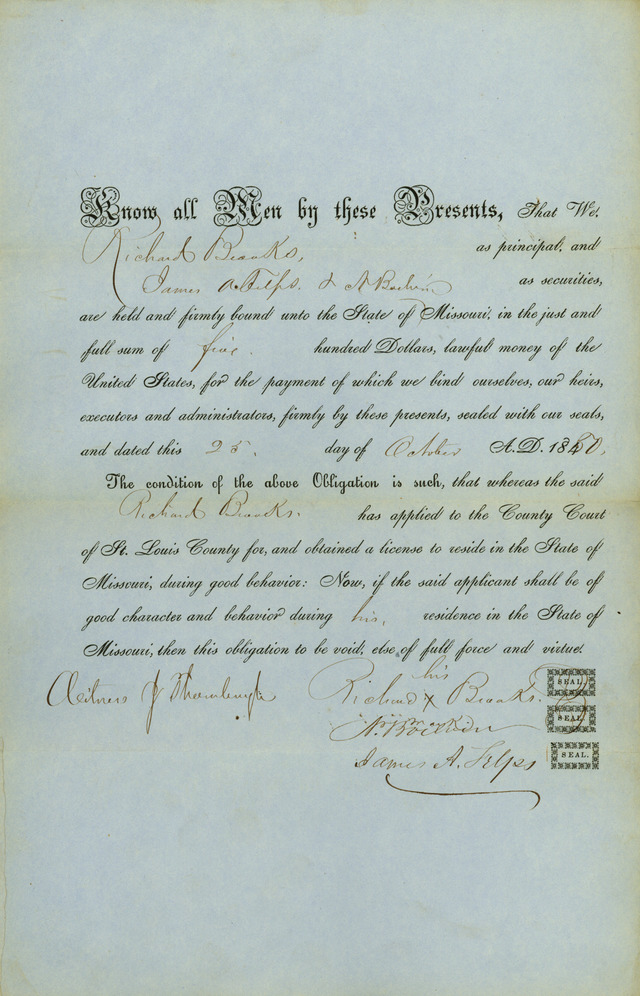 Know all Men by these Presents, That We,
Richard Brooks, as principal, and
James A. Felps. & A as securities,
are held and firmly bound unto the State of Missouri, in the just and
full sum of five hundred Dollars, lawful money of the
United States, for the payment of which we bind ourselves, our heirs,
executors and administrators, firmly by these presents, sealed with our seals,
and dated this 25. day of October A.D. 1850,
The condition of the above Obligation is such, that whereas the said
Richard Brooks. has applied to the County Court
of St. Louis County for, and obtained a license to reside in the State of
Missouri, during good behavior: Now, if the said applicant shall be of
good character and behavior during his, residence in the State of
Missouri, then this obligation to be void; else, of full force and virtue.
his
Witness Richard X Brooks. SEAL.
mark
SEAL.
James A. Felps SEAL.